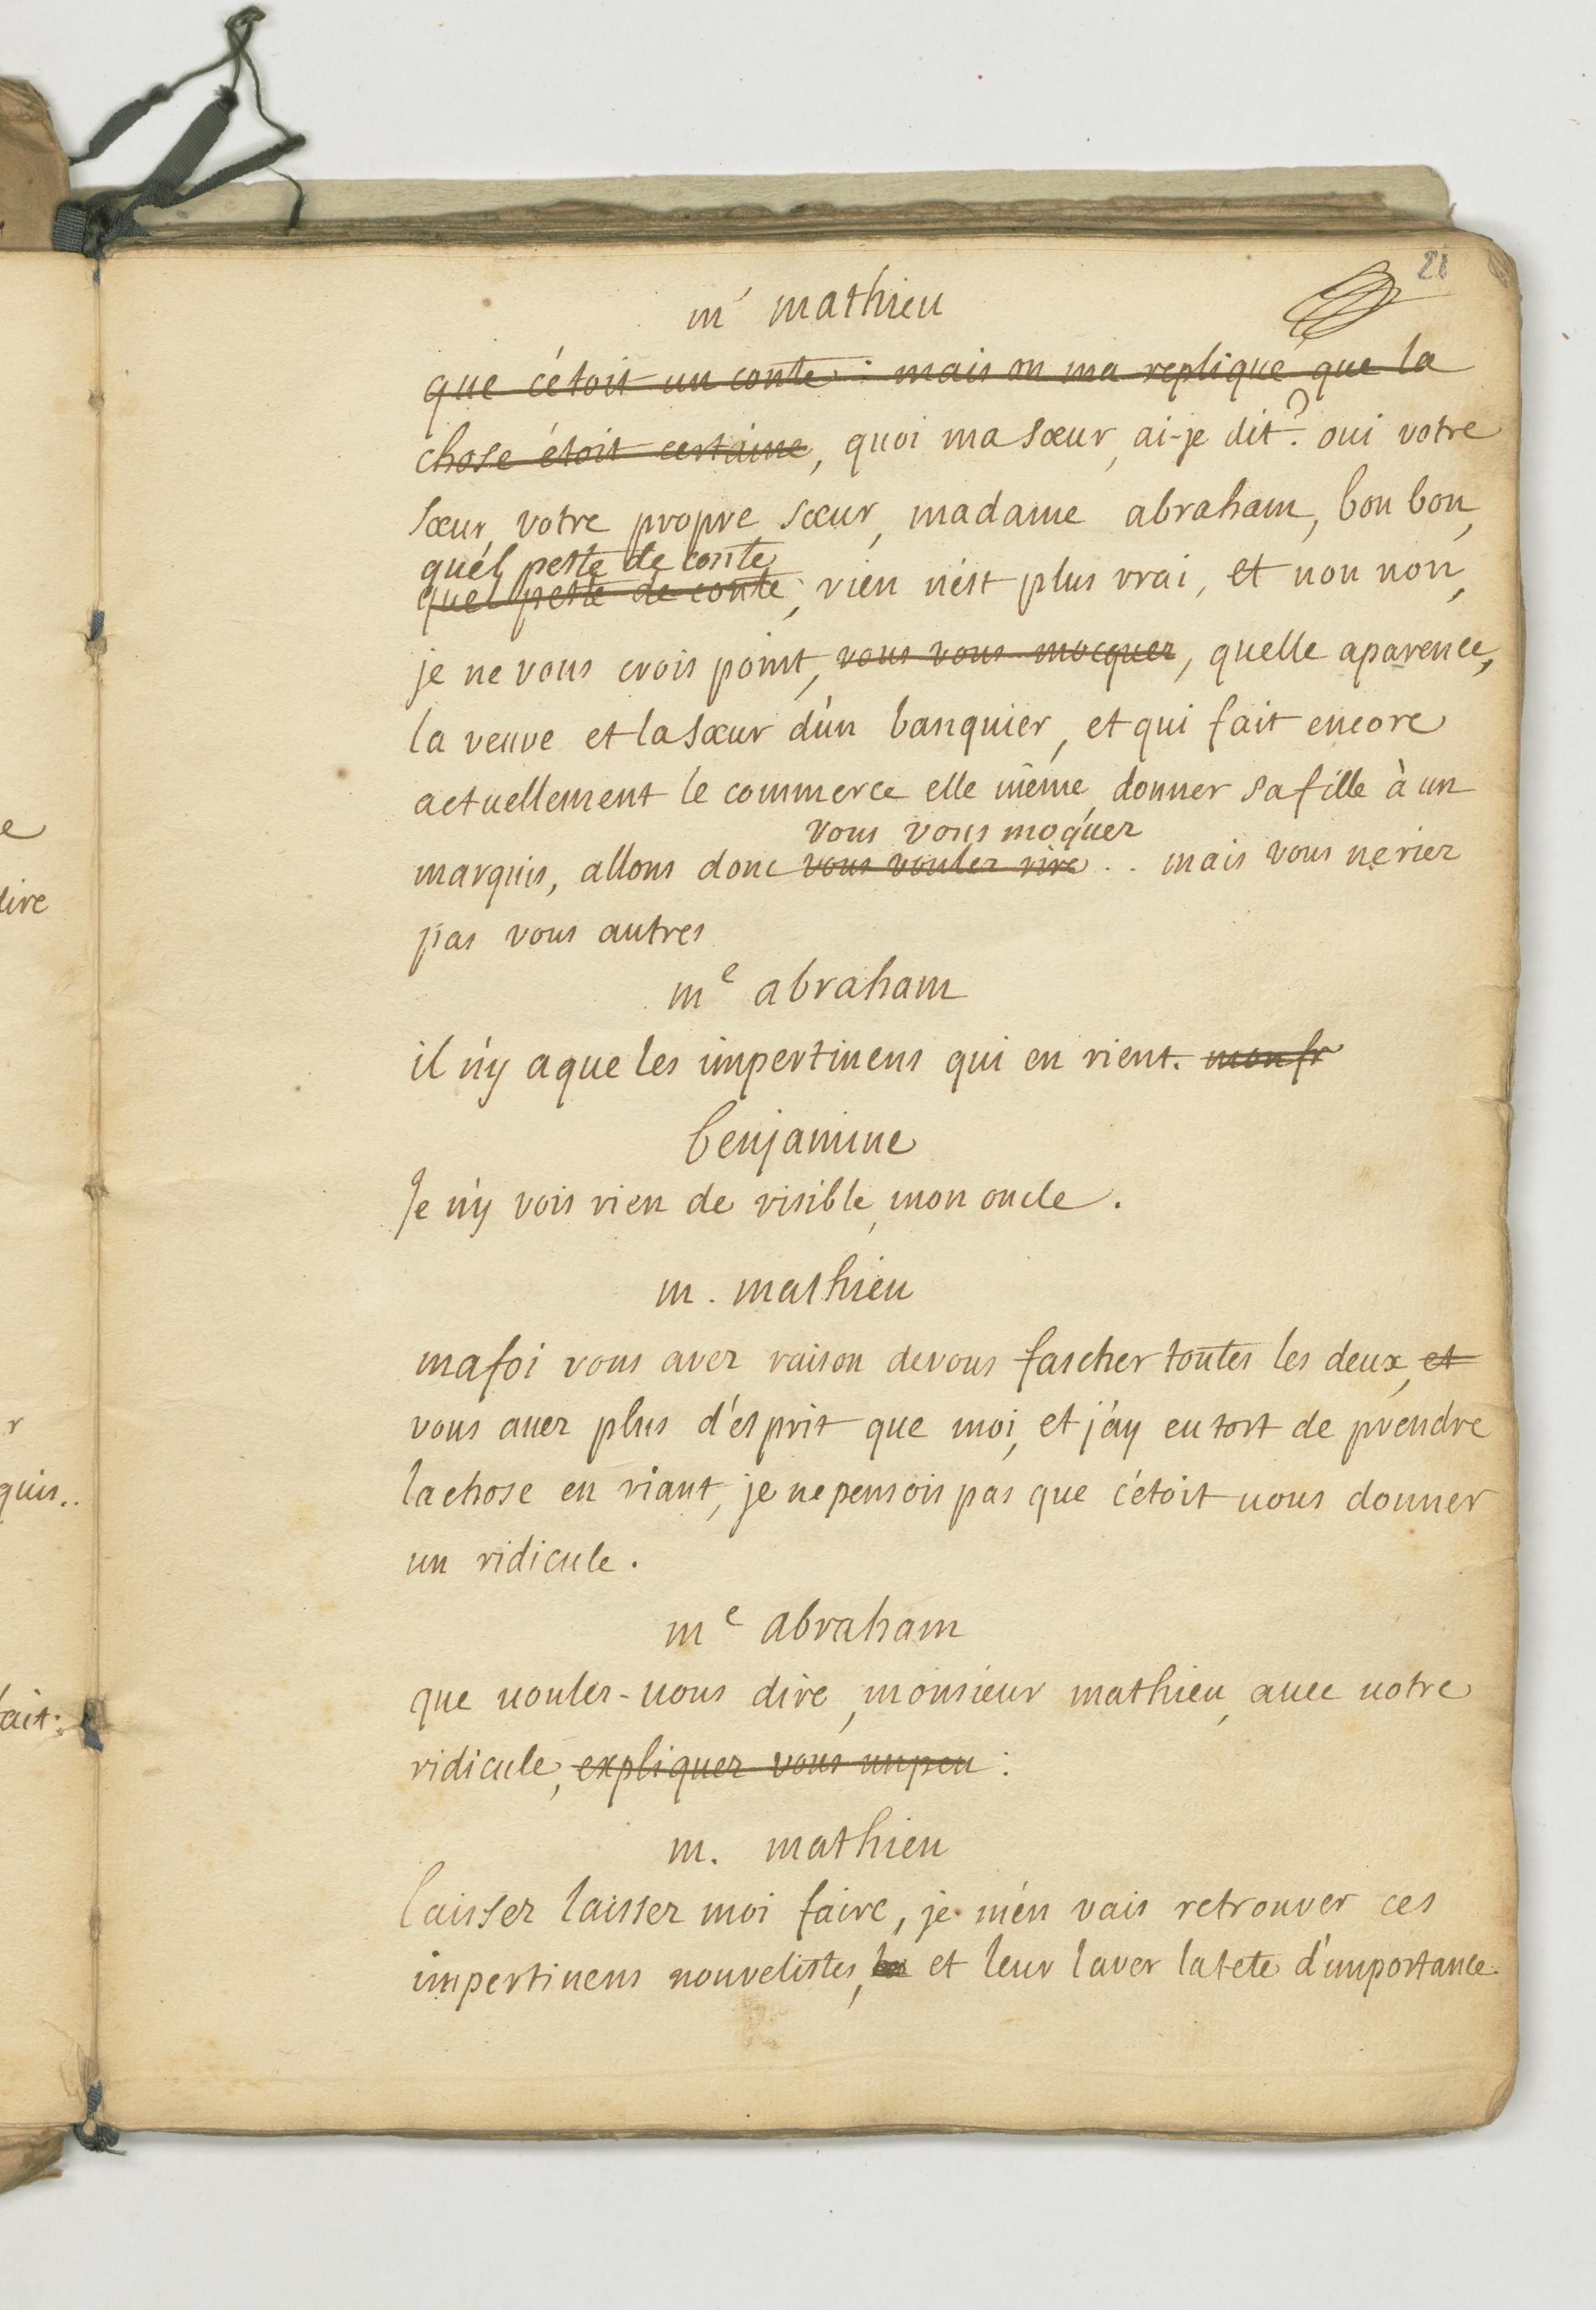 21
mr mathieu
que c'étoit un conte : mais on ma repliqué que la
chose étoit certaine, quoi ma sœur, ai-je dit ? oui votre
sœur, votre propre sœur, madame abraham, bon bon,
quél peste de conte
quel peste de conte, rien n'ést plus vrai, et non non,
je ne vous crois point, vous vous mocquez, quelle aparence,
la veuve et la sœur d'un banquier, et qui fait encore
actuellement le commerce elle même, donner sa fille à un
vous vous moquez
marquis, allons donc vous voulez rire .. mais vous ne riez
pas vous autres
me abraham
il n'y a que les impertinens qui en rient. mon fr
benjamine
Je n'y vois rien de risible, mon oncle.
m. mathieu
ma foi vous avez raison de vous fascher toutes les deux, et
vous auez plus d'esprit que moi, et j'ay eu tort de prendre
la chose en riant, je ne pensois pas que c'étoit uous donner
un ridicule.
me abraham
que uoulez-uous dire, monsieur mathieu, auec uotre
ridicule, expliquez vous un peu :
m. mathieu
laissez laissez moi faire, je m'en vais retrouver ces
impertinens nouvelistes, et leur laver la tete d'importance.
e
dire
r
quis..
fait: